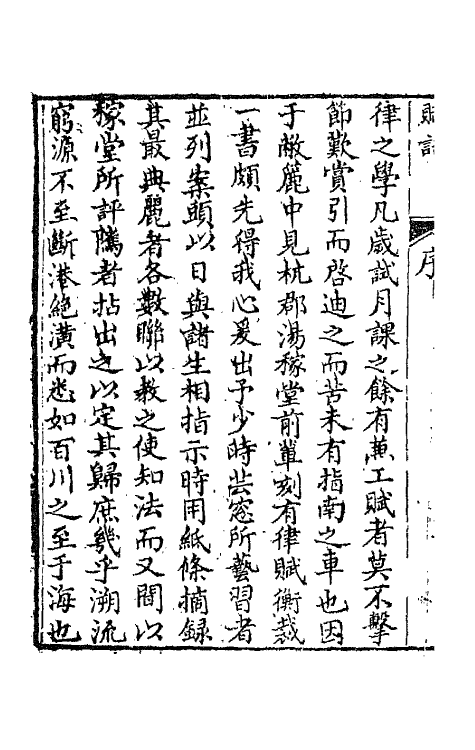 賦話
序
律之學凡歲試月課之餘有兼工賦者莫不擊
節歎賞引而啓迪之而苦未有指南之車也因
于敝簏中見杭郡湯稼堂前軰刻有律賦衡裁
一書頗先得我心爰出予少時芸窓所藝習者
並列案頭以日與諸生相指示時用紙條摘録
其最典麗者各數聯以教之使知法而又間以
稼堂所評隲者拈出之以定其歸庶幾乎溯流
窮源不至斷港絶潢而悉如百川之至于海也